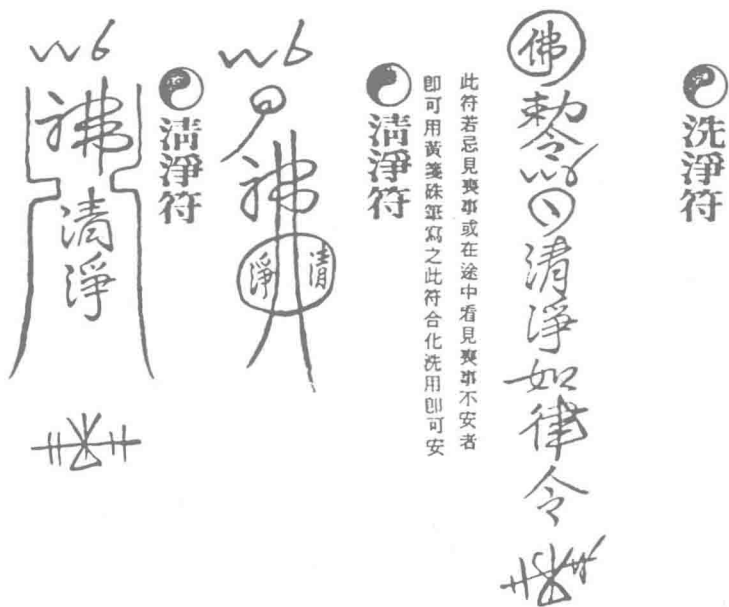 洗淨符
佛
勅令
清淨如律令
此符若忌見喪事或在途中看見喪事不安者
卽可用黃箋硃筆寫之此符合化洗用卽可安
清淨符
佛
清淨
清淨符
佛
清淨